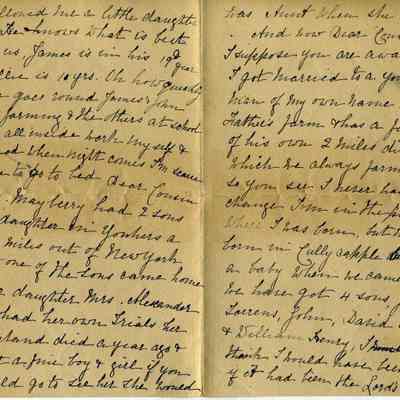 llowed me a little daughter
He knows what is best
us. James is in his 19th year
is 10 yrs. Oh how quickly
goes round James & John
farming & the others at school
all inside work myself &
when night comes I'm scarce
to go to bed Dear Cousin
. Mayberry had 2 sons
daughter in Yonkers a
miles out of New York
one of the sons came home
daughter Mrs. Alexander
had her own trials her
died a year ago &
a fine boy & girl if you
ld go to see her she would
was Aunt when she
. And now Dear Cous
I suppose you are awa
I got married to a yo
man of my own name
Father's farm & has a f
of his own 2 miles di
which we always farm
so you see I never had
change I'm in the
where I was born, but
born in Cully capple
a baby when we came
we have got 4 sons, J
Lorrens, John, David
& William Henry, I
think I would have been
if it had been the Lord's